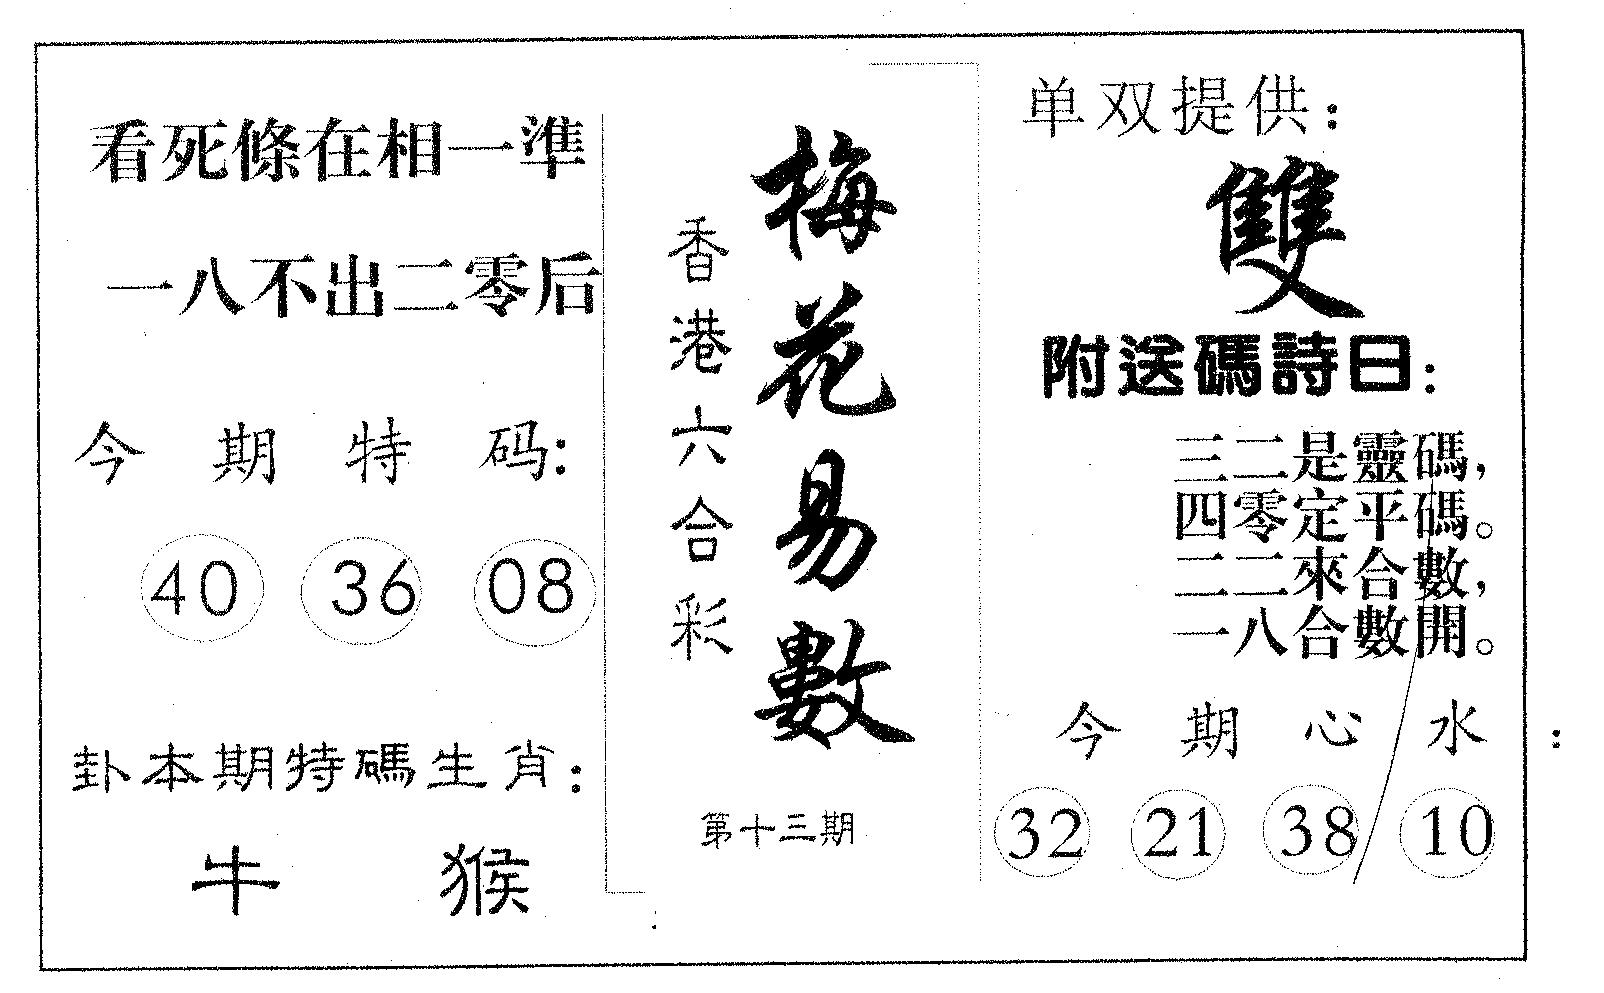 看死條在相一準
一八不出二零后
今期特码:
40 36 08
卦本期特碼生肖:
牛 猴
梅花易數
香港六合彩
第十三期
单双提供:
雙
附送碼詩曰:
三二是靈碼,
四零定平碼。
二二來合數,
一八合數開。
今期心水:
32 21 38 10